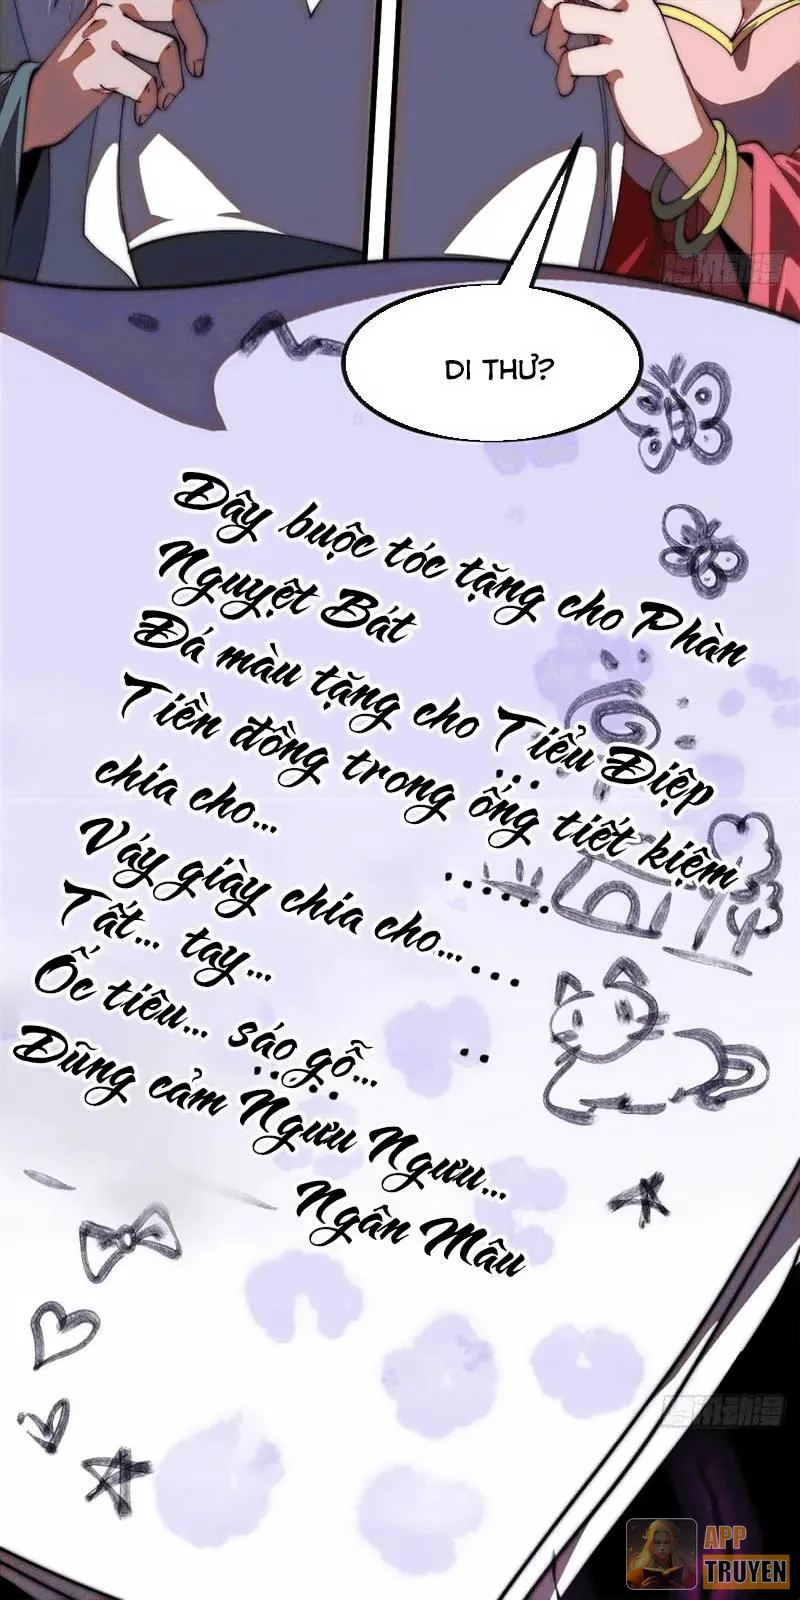 DI THƯ?
Dây buộc tóc tặng cho Phàn
Nguyệt Bát
Đá màu tặng cho Tiểu Điệp
...
Tiền đồng trong ống tiết kiệm
chia cho...
......
Váy giày chia cho...
...
Tất... tay...
..
Ốc tiêu... sáo gỗ...
.....
Dũng cảm Ngưu Ngưu...
Ngân Mâu
APP
TRUYEN